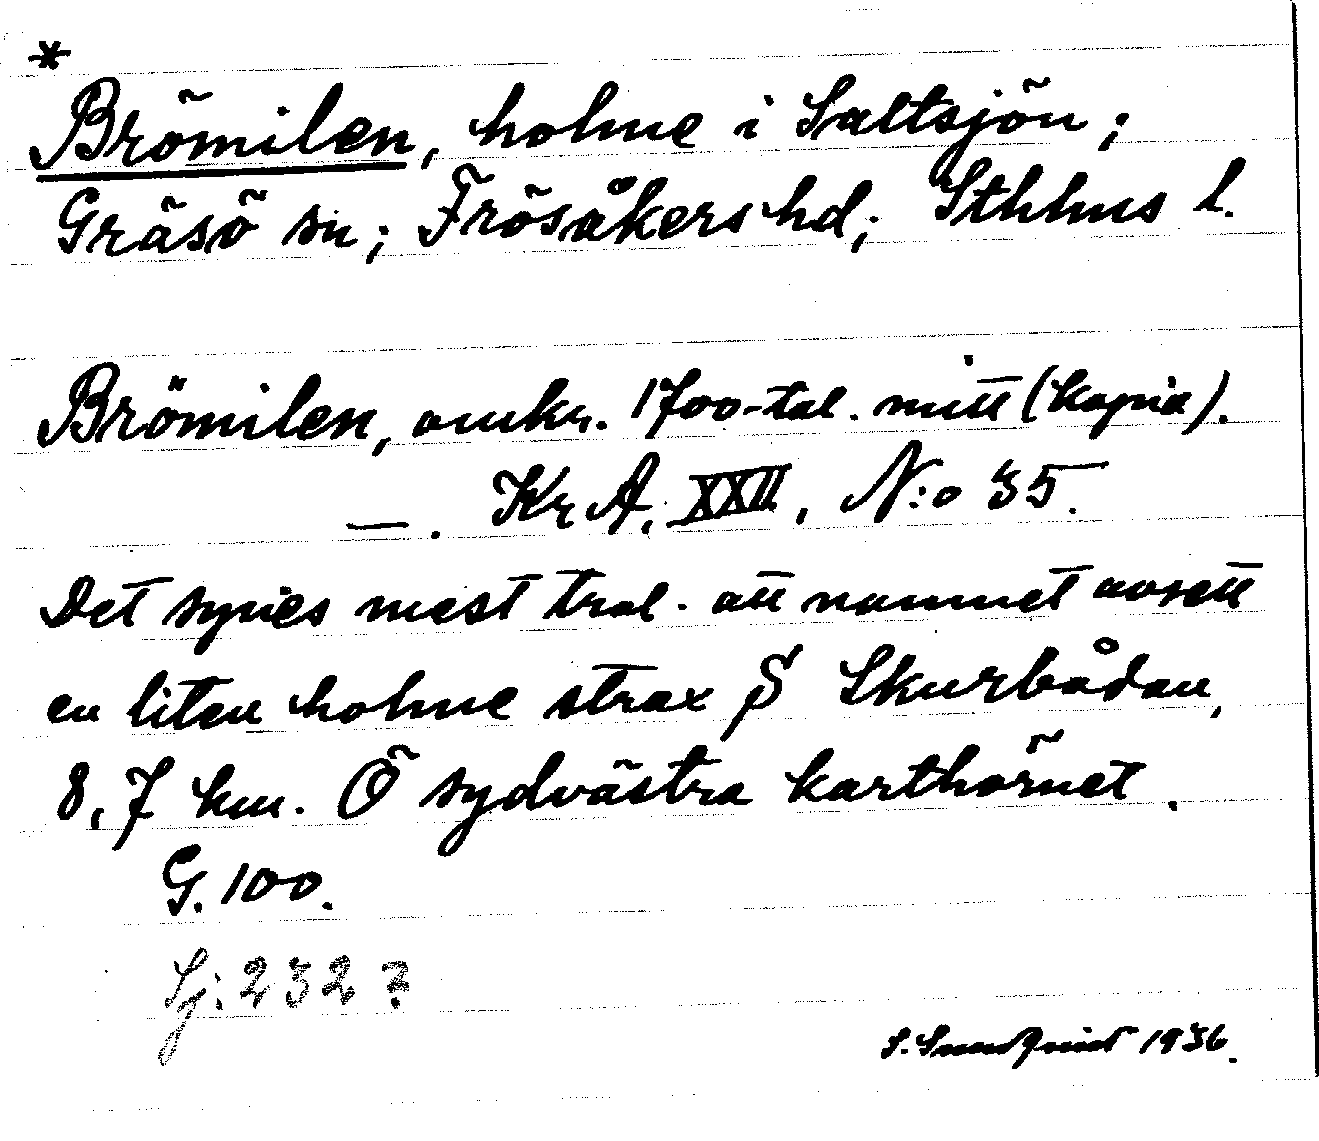 *
Brömilen, holme i Saltsjön;
Gräsö sn; Frösåkers hd; Sthlms l.
Brömilen, omkr. 1700-tal. mitt (kopia).
—. Kr A, XXII, N:o 35.
Det synes mest trol. att namnet avsett
en liten holme strax S Skurbådan,
8,7 km. Ö sydvästra karthörnet.
G. 100.
Sj: 232?
S. Sundqvist 1936.